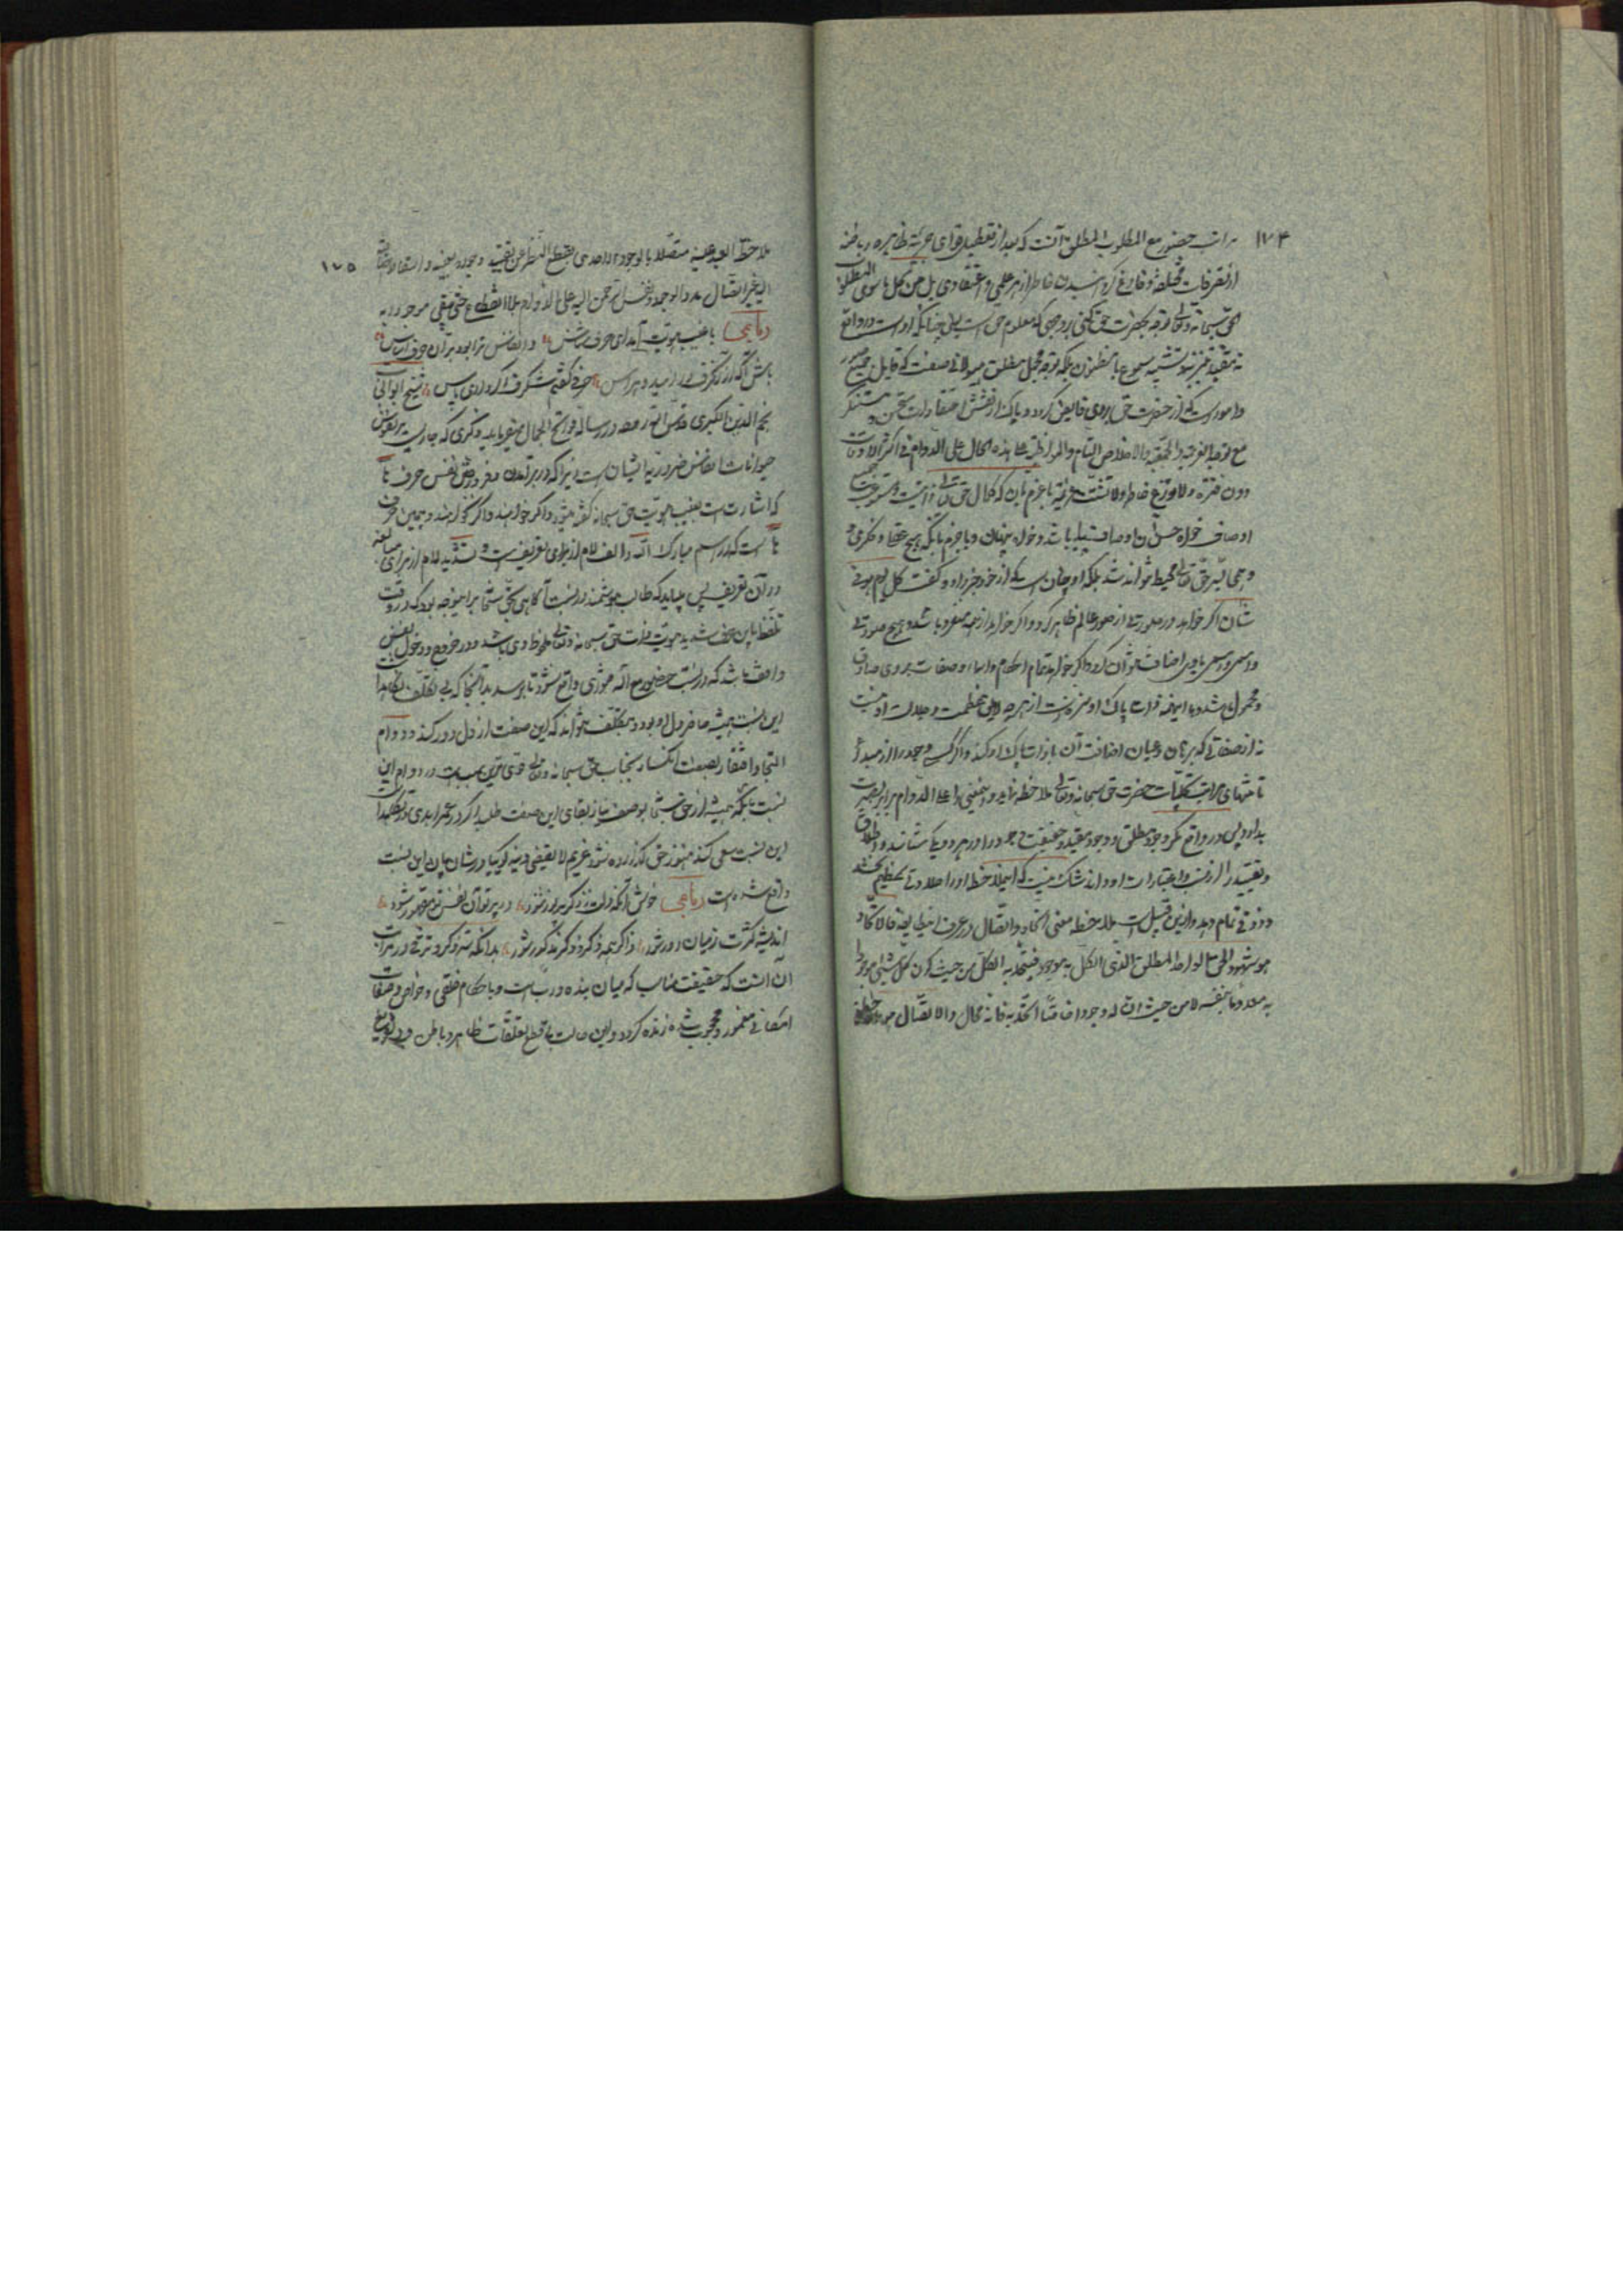 ۱۷۴
مراتب حضور مع المطلوب المطلق آنست که بعد از تعطیل قوای جزئیه ظاهره و باطنه
از تصرفات مختلفه و فارغ گردانیدن خاطر از هر علمی و اعتقادی بل عن کل ما سوی المطلوب
حق سبحانه و تعالی توجه بحضرت حق کنی بر وجهی که معلوم حق است یعنی چنانکه اوست در واقع
نه مقید بتنزیه و تشبیه مسموع یا مظنون بلکه توجه مجمل مطلق هیولانی صفت که قابل جمیع صور
و امور است که از حضرت حق بر وی فایض گردد و پاک از نقش اعتقادات مستحسن و مستنکر
مع توحید العزیمة و الجمعیة و الاخلاص التام و المواظبة علی هذه الحال علی الدوام فی اکثر الاوقات
دون فترة و لا توزع خاطر و لا تشتت عزیمة با جزم بآن که کمال حق تعالی ذاتیست و مستوعب جمیع
اوصاف خواه حسن آن اوصاف پیدا باشد و خواه پنهان و با جزم بآنکه هیچ عقل و فکری و
وهمی بسر حق تعالی محیط نتواند شد بلکه او چنان است که از خود خبر داد و گفت کل یوم هو فی
شأن اگر خواهد در صورتی از صور عالم ظاهر گردد و اگر خواهد از همه منزه باشد و هیچ صورتی
و اسمی و رسمی باوی اضافت نتوان کرد و اگر خواهد تمام احکام و اسما و صفات بر وی صادق
و محمول باشد و با اینهمه ذات پاک او منزهست از هر چه لایق عظمت و جلالت او نیست
نه از صفاتی که برهان و عیان اضافت آن با ذات پاک او کند و اگر کسی وجود را از مبدأ
تا منتهای مراتب تجلیات حضرت حق سبحانه و تعالی ملاحظه نماید و اینمعنی را علی الدوام برابر بصیرت
بدارد پس در واقع نگرد وجود مطلق و وجود مقید و حقیقت وجود را در هر دو یکی شناسد و اطلاق
و تقیید را از نسب و اعتبارات او داند شک نیست که این ملاحظه او را حلاوتی عظیم بخشد
و ذوقی تمام دهد و ازین قبیل است ملاحظه معنی اتحاد و اتصال در عرف این طایفه فالاتحاد
هو شهود الحق الواحد المطلق الذی الکل به موجود فیتحد به الکل من حیث کون کل شیئ موجودا
به معدوما بنفسه لا من حیث ان له وجودا خاصا اتحد به فانه محال و الاتصال هو ملاحظة
۱۷۵
ملاحظة العبد عینه متصلا بالوجود الاحدی بقطع النظر عن تقیید وجوده بعینه و اسقاط اضافته
الیه فیری اتصال مدد الوجود و نفس الرحمن الیه علی الدوام بلا انقطاع حتی یبقی موجودا به
رباعی با غیب هویت آمد ای حرف شناس و انفاس ترا بود بر آن حرف اساس
باش آگه از آن حرف در امید و هراس حرفی گفتم شگرف اگر داری پاس شیخ ابو الجناب
نجم الدین الکبری قدس الله روحه در رساله فواتح الجمال میفرماید ذکری که جاریست بر نفوس
حیوانات انفاس ضروریه ایشان است زیرا که در برآمدن و فرو رفتن نفس حرف ها
که اشارتست بغیب هویت حق سبحانه گفته میشود اگر خواهند و اگر نخواهند و همین حرف
ها است که در اسم مبارک الله و الف لام از برای تعریف است و تشدید لام از برای مبالغه
در آن تعریف پس میباید که طالب هوشمند در نسبت آگاهی بحق سبحانه برین وجه بود که در وقت
تلفظ باین حرف شریف هویت ذات حق سبحانه و تعالی ملحوظ وی باشد و در خروج و دخول نفس
واقف باشد که در نسبت حضور مع الله فتوری واقع نشود تا برسد بدانجا که بی تکلف نگاهداشت
این نسبت همیشه حاضر دل او بود و بتکلف نتواند که این صفت از دل دور کند و دوام
التجا و افتقار بصفت انکسار بجناب حق سبحانه و تعالی قوی ترین سببیست در دوام این
نسبت بلکه همیشه از حق سبحانه بوصف نیاز بقای این صفت طلبد اگر در عمر ابدی در نگاهداشت
این نسبت سعی کند هنوز حق گذارده نشود غریم لا یقضی دینه گوییا در شأن این نسبت
واقع شده است رباعی خوش آنکه دلت ز ذکر پر نور شود در پرتو آن نفس تو مقهور شود
اندیشه کثرت ز میان دور شود ذاکر همه ذکر و ذکر مذکور شود بدانکه سر ذکر و ترقی در مراتب
آن آنست که حقیقت مناسبت که میان بنده و رب است و باحکام خلقی و خواص و صفات
امکانی مغمور و محجوب شده زنده گردد و این حالت بی قطع تعلقات ظاهر و باطن و بی تفریغ